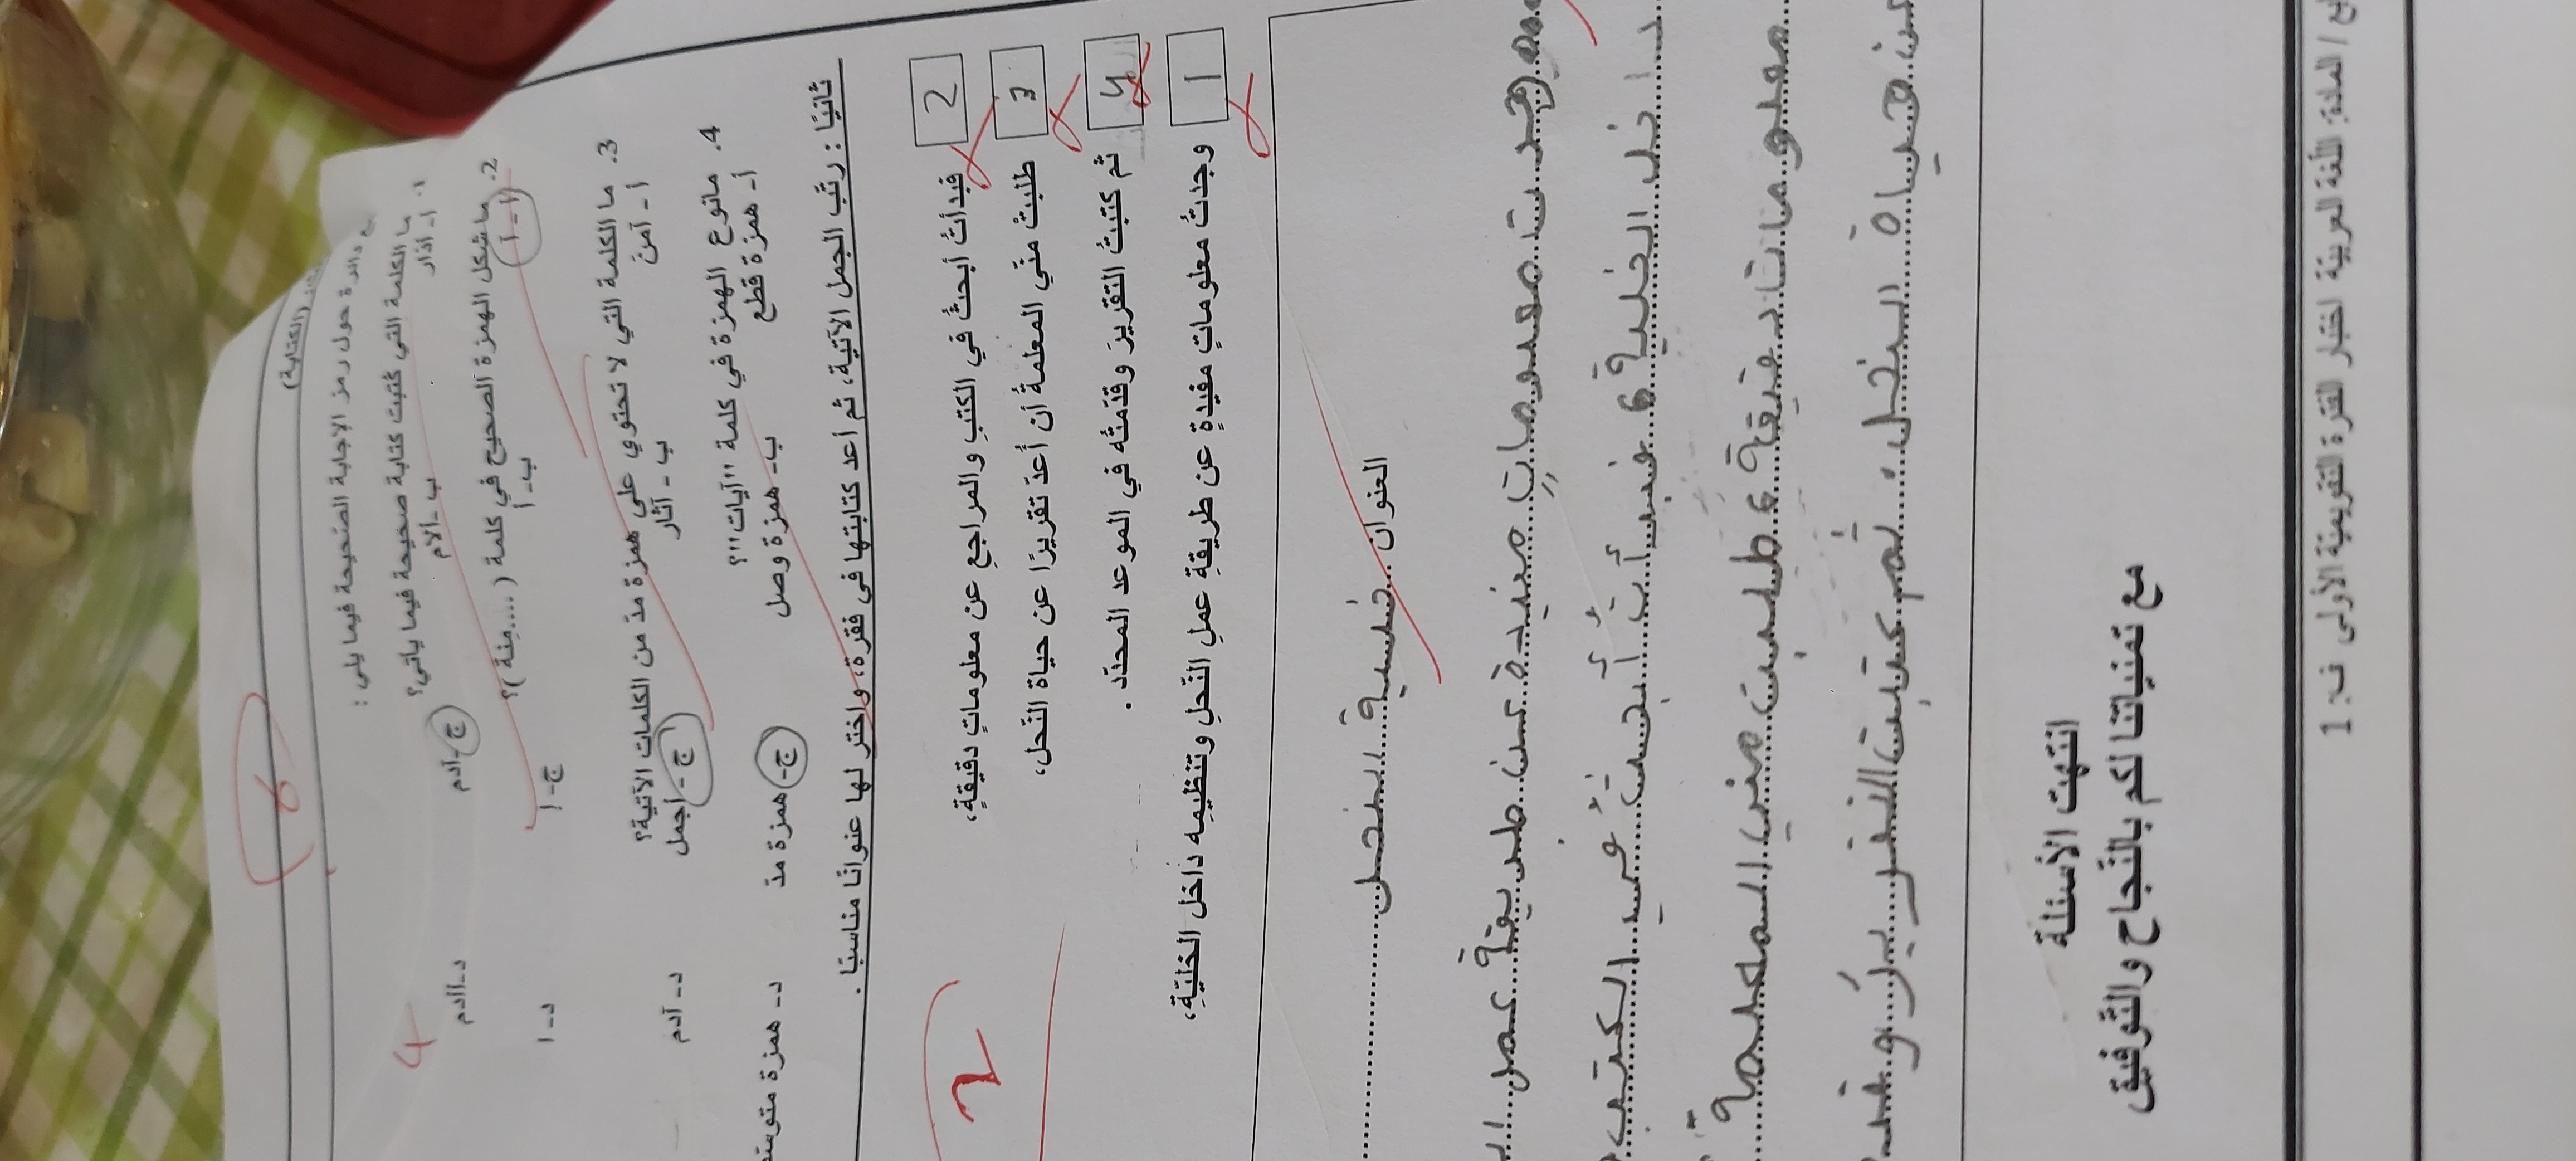 (الكتابة)
6
حول رمز الإجابة الصحيحة فيما يلي :
1. ما الكلمة التي كتبت كتابة صحيحة فيما يأتي؟
أ- أذار ب- ألأم ج- آدم د- أأدم
4
2. ما شكل الهمزة الصحيح في كلمة (....منة)؟
أ- آ ب- أ ج- إ د- ا
3. ما الكلمة التي لا تحتوي على همزة مد من الكلمات الآتية؟
أ- آمن ب- آثار ج- أجمل د- آدم
4. مانوع الهمزة في كلمة "آيات"؟
أ- همزة قطع ب- همزة وصل ج- همزة مد د- همزة
ثانيًا: رتّب الجمل الآتية، ثم أعد كتابتها في فقرة، واختر لها عنوانًا مناسبًا.
2 فبدأتُ أبحثُ في الكتبِ والمراجعِ عن معلوماتٍ دقيقةٍ،
2
3 طلبتْ منّي المعلمةُ أن أعدّ تقريرًا عن حياة النّحل،
4 ثم كتبتُ التّقريرَ وقدّمتُه في الموعد المحدّد .
1 وجدتُ معلوماتٍ مفيدةٍ عن طريقةِ عملِ النّحلِ وتنظيمِه داخل الخليّةِ،
العنوان خلية النحل
وجدت معلوماتٍ مفيدة عن طريقة عمل
داخل الخلية و فبدأتُ أبحثُ في الكتب
معلومات دقيقة و طلبت مني المعلمة
عن حياة النحل، ثم كتبت التقرير وقد
انتهت الأسئلة
مع تمنياتنا لكم بالنّجاح والتّوفيق
المادة: اللّغة العربيّة اختبار الفترة التّقويميّة الأولى ف: 1